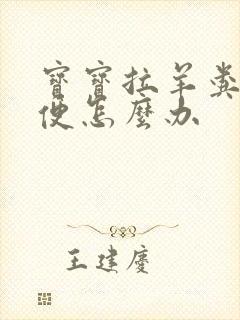 寶寶拉羊糞
便怎麼办
王建慶